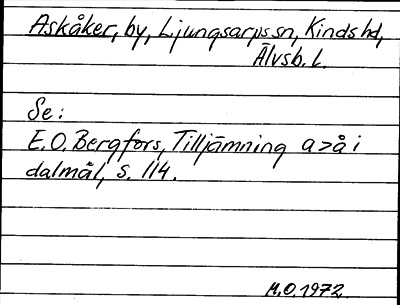 Askåker, by, Ljungsarps sn, Kinds hd,
Älvsb. l.
Se:
E.O. Bergfors, Tilljämning a>å i
dalmål, s. 114.
M.O. 1972